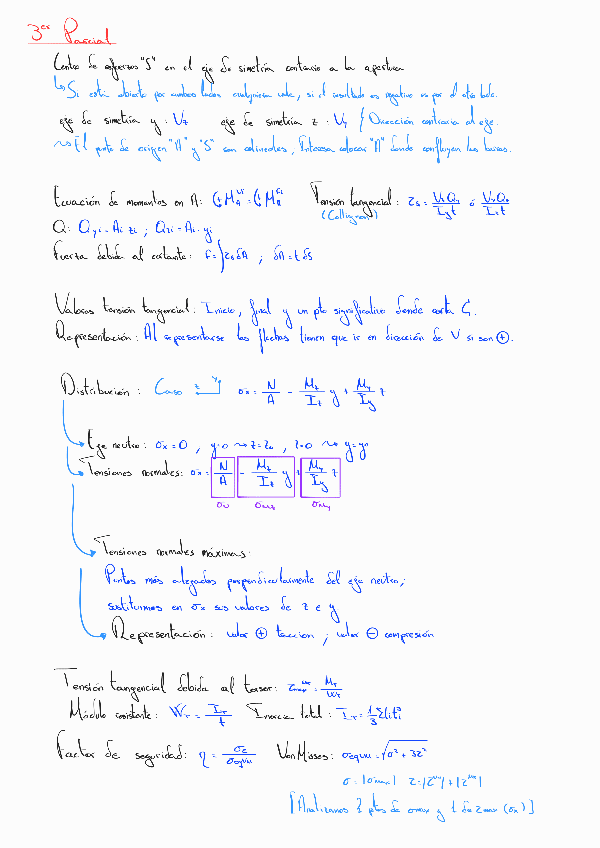 3er Parcial
Centro de esfuerzos "S" en el eje de simetría contrario a la apertura
↳ Si está abierto por ambos lados cualquiera vale, si el resultado es negativo va por el otro lado.
eje de simetría y: Vz eje de simetría z: Vy / Dirección contraria al eje.
~> El punto de origen "A" y "S" son colineales, Interesa colocar "A" donde confluyan las barras.
Ecuación de momentos en A:
Tensión tangencial: τs = VyQz/Iyt ó VzQy/Izt
(Collignon)
Q: Qyi = Ai·zi ; Qzi = Ai·yi
Fuerza debida al cortante: F = ∫τs δA ; δA = t δs
Valores tensión tangencial: Inicio, final y un pto significativo donde corta G.
Representación: Al representarse las flechas tienen que ir en dirección de V si son ⊕.
Distribución: Caso z y σx = N/A - Mz/Iz y + My/Iy z
Eje neutro: σx = 0 , y=0 ~> z=z0 , z=0 ~> y=y0
Tensiones normales: σx = N/A - Mz/Iz y + My/Iy z
σN σMz σMy
Tensiones normales máximas:
Puntos más alejados perpendicularmente del eje neutro,
sustituimos en σx sus valores de z e y
Representación: valor ⊕ tracción ; valor ⊖ compresión
Tensión tangencial debida al torsor: τmax^Mx = Mx/Wx
Módulo resistente: Wx = Ix/t Inercia total: Ix = 1/3 Σliti³
Factor de seguridad: η = σe/σequi Von Misses: σequi = √σ² + 3τ²
σ = |σmax| τ = |τ^Vy| + |τ^Mx|
[Analizamos 1 pto de σmax y 1 de τmax (σx)]